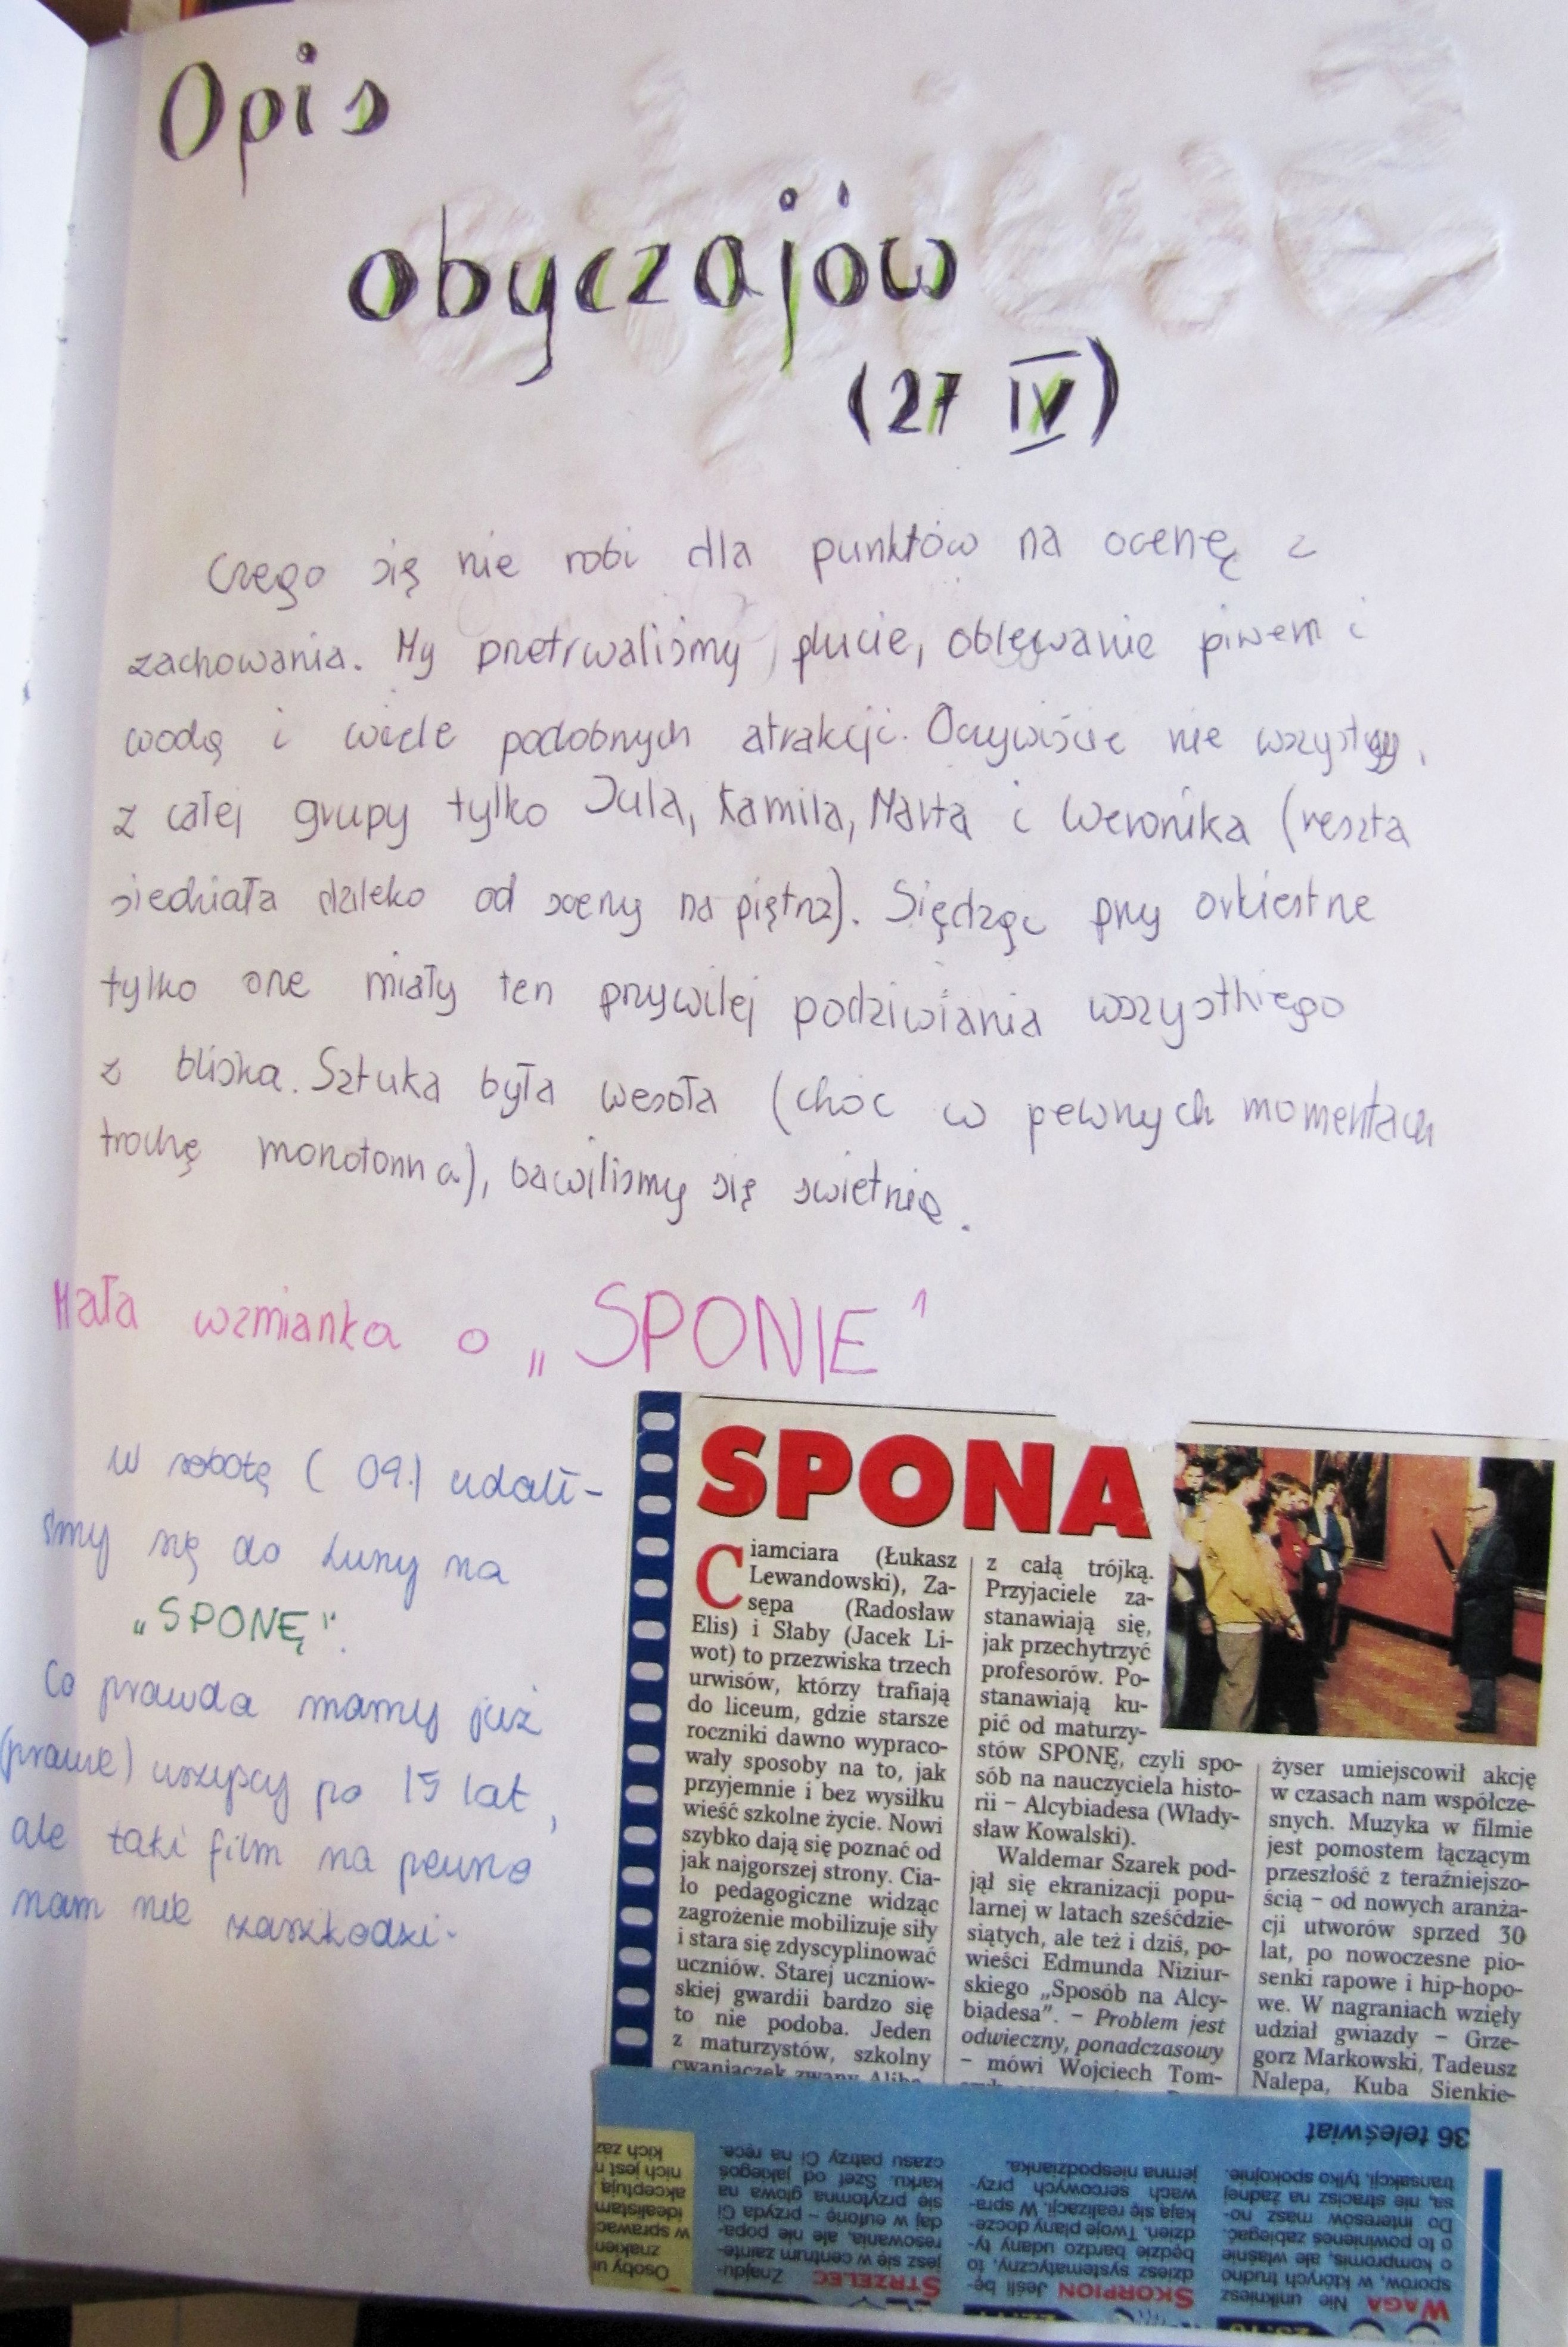 Opis
obyczajów
(27 IV)
Czego się nie robi dla punktów na ocenę z
zachowania. My przetrwaliśmy plucie, oblewanie piwem i
wodą i wiele podobnych atrakcji. Oczywiście nie wszyscy,
z całej grupy tylko Jula, Kamila, Marta i Weronika (reszta
siedziała daleko od sceny na piętrz). Siędząc przy orkiestrze
tylko one miały ten przywilej podziwiania wszystkiego
z bliska. Sztuka była wesoła (choc w pewnych momentach
trochę monotonna), bawiliśmy się swietnie.
Mała wzmianka o „SPONIE"
W sobotę ( 09.) udali-
śmy się do Luny na
„SPONĘ".
Co prawda mamy już
(prawie) wszyscy po 15 lat,
ale taki film na pewno
nam nie zaszkodzi.
SPONA
Ciamciara (Łukasz
Lewandowski), Za-
sępa (Radosław
Elis) i Słaby (Jacek Li-
wot) to przezwiska trzech
urwisów, którzy trafiają
do liceum, gdzie starsze
roczniki dawno wypraco-
wały sposoby na to, jak
przyjemnie i bez wysiłku
wieść szkolne życie. Nowi
szybko dają się poznać od
jak najgorszej strony. Cia-
ło pedagogiczne widząc
zagrożenie mobilizuje siły
i stara się zdyscyplinować
uczniów. Starej uczniow-
skiej gwardii bardzo się
to nie podoba. Jeden
z maturzystów, szkolny
cwaniaczek zwany Aliba-
z całą trójką.
Przyjaciele za-
stanawiają się,
jak przechytrzyć
profesorów. Po-
stanawiają ku-
pić od maturzy-
stów SPONĘ, czyli spo-
sób na nauczyciela histo-
rii – Alcybiadesa (Włady-
sław Kowalski).
Waldemar Szarek pod-
jął się ekranizacji popu-
larnej w latach sześćdzie-
siątych, ale też i dziś, po-
wieści Edmunda Niziur-
skiego „Sposób na Alcy-
biadesa". – Problem jest
odwieczny, ponadczasowy
– mówi Wojciech Tom-
żyser umiejscowił akcję
w czasach nam współcze-
snych. Muzyka w filmie
jest pomostem łączącym
przeszłość z teraźniejszo-
ścią – od nowych aranża-
cji utworów sprzed 30
lat, po nowoczesne pio-
senki rapowe i hip-hopo-
we. W nagraniach wzięły
udział gwiazdy – Grze-
gorz Markowski, Tadeusz
Nalepa, Kuba Sienkie-
36 teleświat
WAGA Nie unikniesz
sporów, w których trudno
o kompromis, ale właśnie
o to powinieneś zabiegać.
Do interesów masz no-
sa, nie stracisz na żadnej
transakcji, tylko spokojnie.
SKORPION Jeśli bę-
dziesz systematyczny, to
będzie bardzo udany ty-
dzień. Twoje plany docze-
kają się realizacji. W spra-
wach sercowych przy-
jemna niespodzianka.
STRZELEC Znajdu-
jesz się w centrum zainte-
resowania, ale nie popa-
daj w euforię – przyda Ci
się przytomna głowa na
karku. Szef od jakiegoś
czasu patrzy Ci na ręce.
Osoby
znakiem
w sprawac
idealistam
akceptują
nich jest
kich